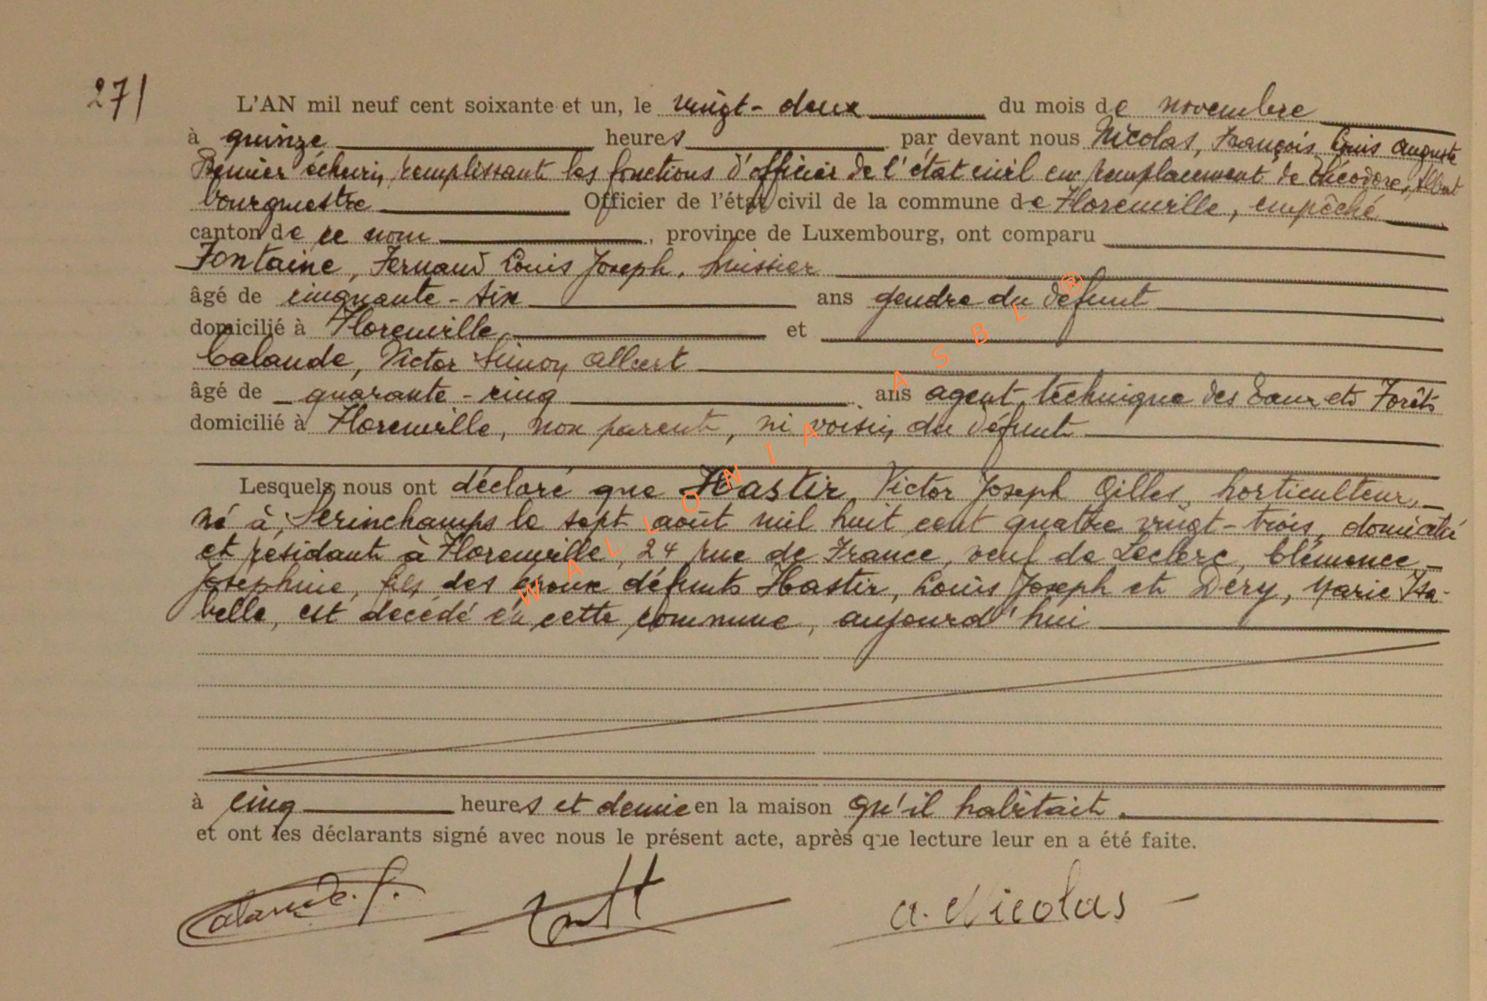 271
L'AN mil neuf cent soixante et un, le vingt-deux du mois de novembre
à quinze heures par devant nous Nicolas, François Louis Auguste
Premier échevin, remplissant les fonctions d'officier de l'état civil en remplacement de Théodore, Albert
bourgmestre Officier de l'état civil de la commune de Florenville, empêché
canton de ce nom , province de Luxembourg, ont comparu
Fontaine, Fernand Louis Joseph, huissier
âgé de cinquante-six ans gendre du défunt
domicilié à Florenville et
Calande, Victor Simon Albert
âgé de quarante-cinq ans agent technique des Eaux et Forêts
domicilié à Florenville, non parent, ni voisin du défunt
Lesquels nous ont déclaré que Hastir, Victor Joseph Gilles, horticulteur,
né à Serinchamps le sept août mil huit cent quatre vingt-trois, domicilié
et résidant à Florenville, 24 rue de France, veuf de Leclerc, Clémence
Joséphine, fils des époux défunts Hastir, Louis Joseph et Dery, Marie Isa-
belle, est décédé en cette commune, aujourd'hui
à cinq heures et demie en la maison qu'il habitait.
et ont les déclarants signé avec nous le présent acte, après que lecture leur en a été faite.
A. Nicolas
WALLONIA ASBL @